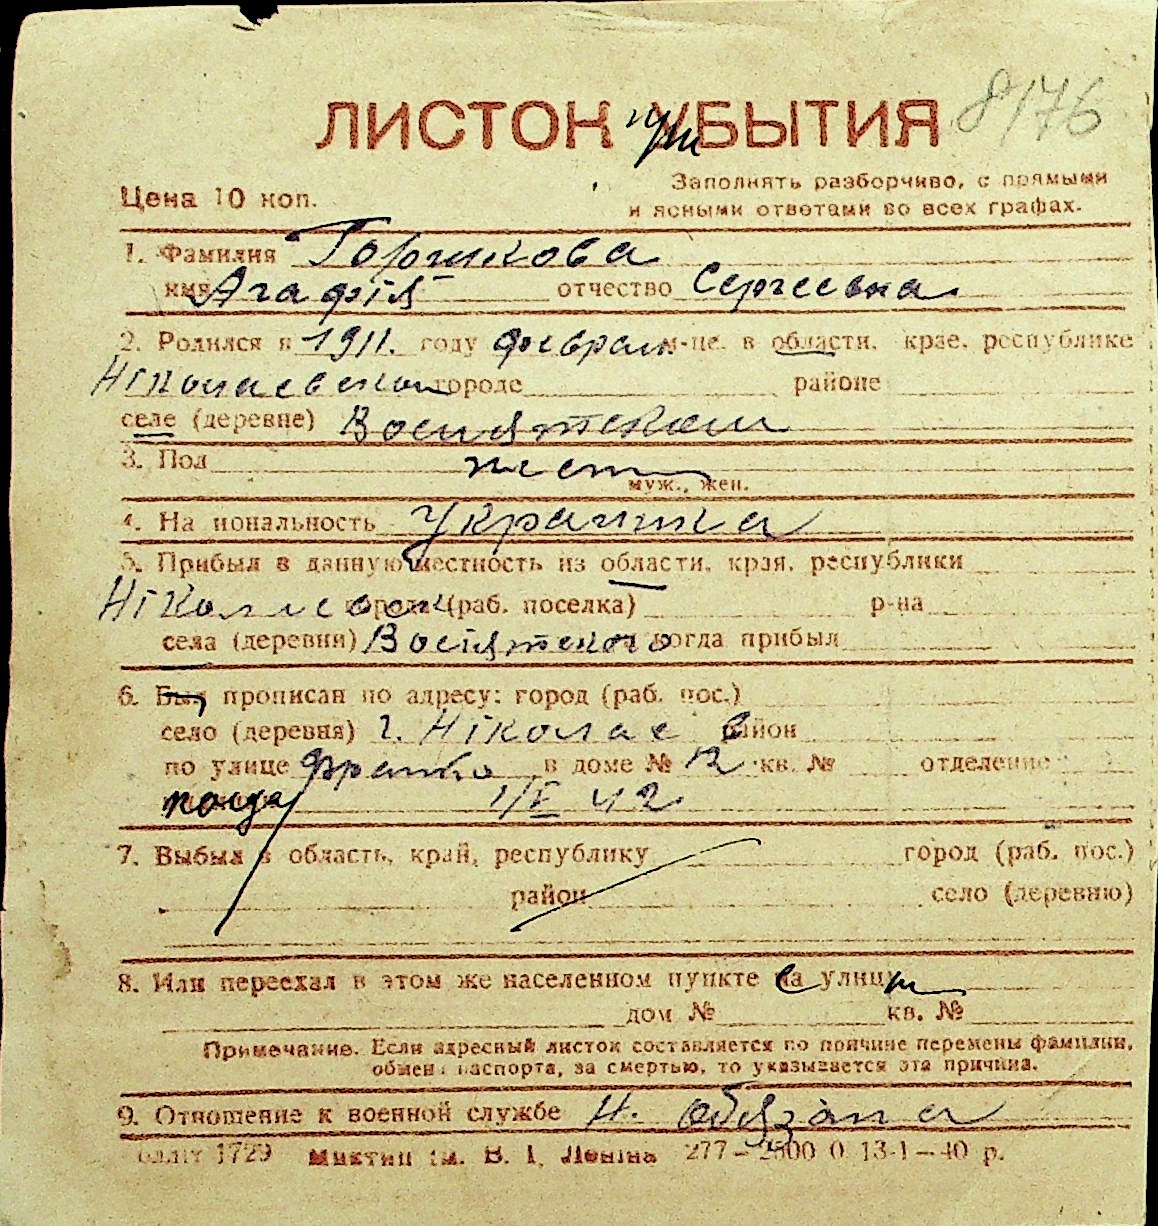 ЛИСТОК УБЫТИЯ 8176
при
Цена 10 коп.
Заполнять разборчиво, с прямыми
и ясными ответами во всех графах.
1. Фамилия Горчикова
имя Агафія отчество Сергеевна
2. Родился в 1911. году феврале м-це. в области, крае, республике
Ніколаевской городе районе
селе (деревне) Восиятском
3. Пол жен
муж., жен.
4. На иональность Украинка
5. Прибыл в данную местность из области, края, республики
Ніколаевск города (раб. поселка) р-на
села (деревни) Восіятского когда прибыл
6. Был прописан по адресу: город (раб. пос.)
село (деревня) г. Ніколаев район
по улице Франко в доме № 12 кв. № отделение
когда 1/V 42
7. Выбыл в область, край, республику город (раб. пос.)
район село (деревню)
8. Или переехал в этом же населенном пункте на улицу
дом № кв. №
Примечание. Если адресный листок составляется по причине перемены фамилии,
обмена паспорта, за смертью, то указывается эта причина.
9. Отношение к военной службе Н. обязана
1729 ім. В. І. Леніна 277—2500 0 13-1—40 р.